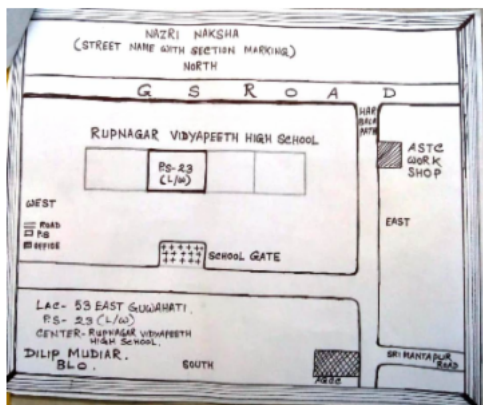 NAZRI NAKSHA
(STREET NAME WITH SECTION MARKING)
NORTH
G S ROAD
HARI BALA PATH
RUPNAGAR VIDYAPEETH HIGH SCHOOL
P.S-23
(L/W)
ASTC
WORK
SHOP
WEST
EAST
ROAD
P.S
OFFICE
SCHOOL GATE
LAC- 53 EAST GUWAHATI.
P.S- 23 (L/W)
CENTER- RUPNAGAR VIDYAPEETH
HIGH SCHOOL.
DILIP MUDIAR.
BLO.
SOUTH
SRIMANTAPUR
ROAD